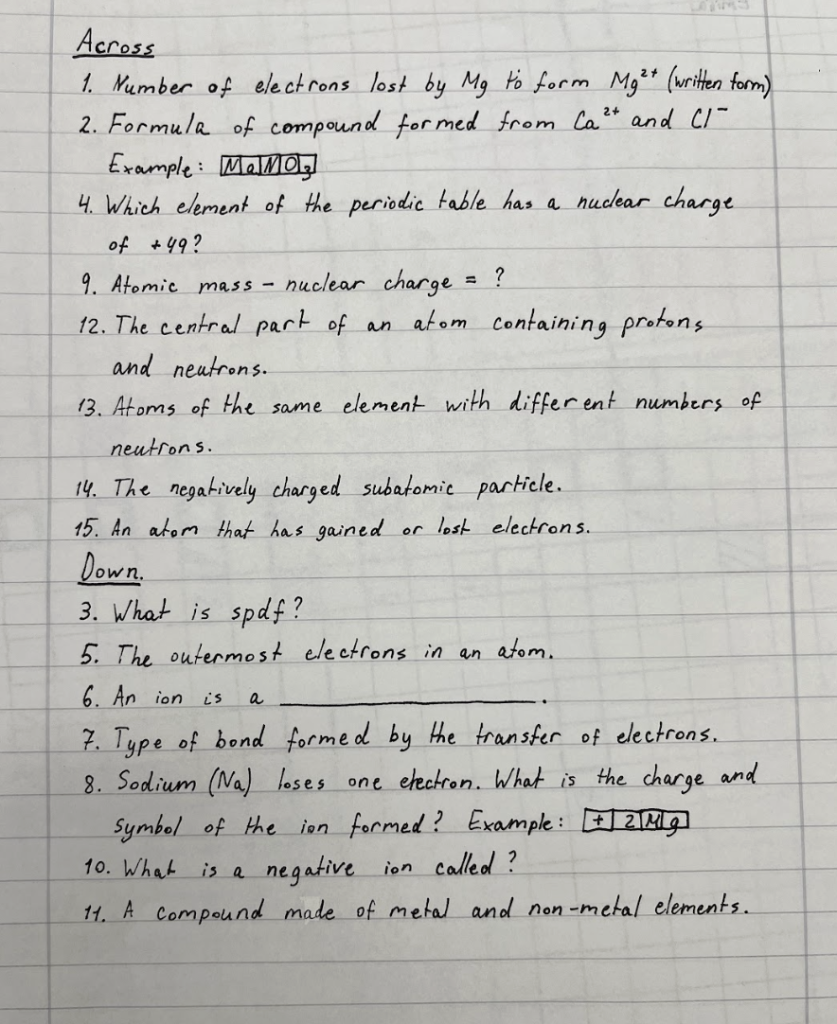 Across
1. Number of electrons lost by Mg to form Mg²⁺ (written form)
2. Formula of compound formed from Ca²⁺ and Cl⁻
Example: MaNO3
4. Which element of the periodic table has a nuclear charge
of +49?
9. Atomic mass - nuclear charge = ?
12. The central part of an atom containing protons
and neutrons.
13. Atoms of the same element with different numbers of
neutrons.
14. The negatively charged subatomic particle.
15. An atom that has gained or lost electrons.
Down.
3. What is spdf?
5. The outermost electrons in an atom.
6. An ion is a ____________.
7. Type of bond formed by the transfer of electrons.
8. Sodium (Na) loses one electron. What is the charge and
symbol of the ion formed? Example: +2Mg
10. What is a negative ion called?
11. A compound made of metal and non-metal elements.